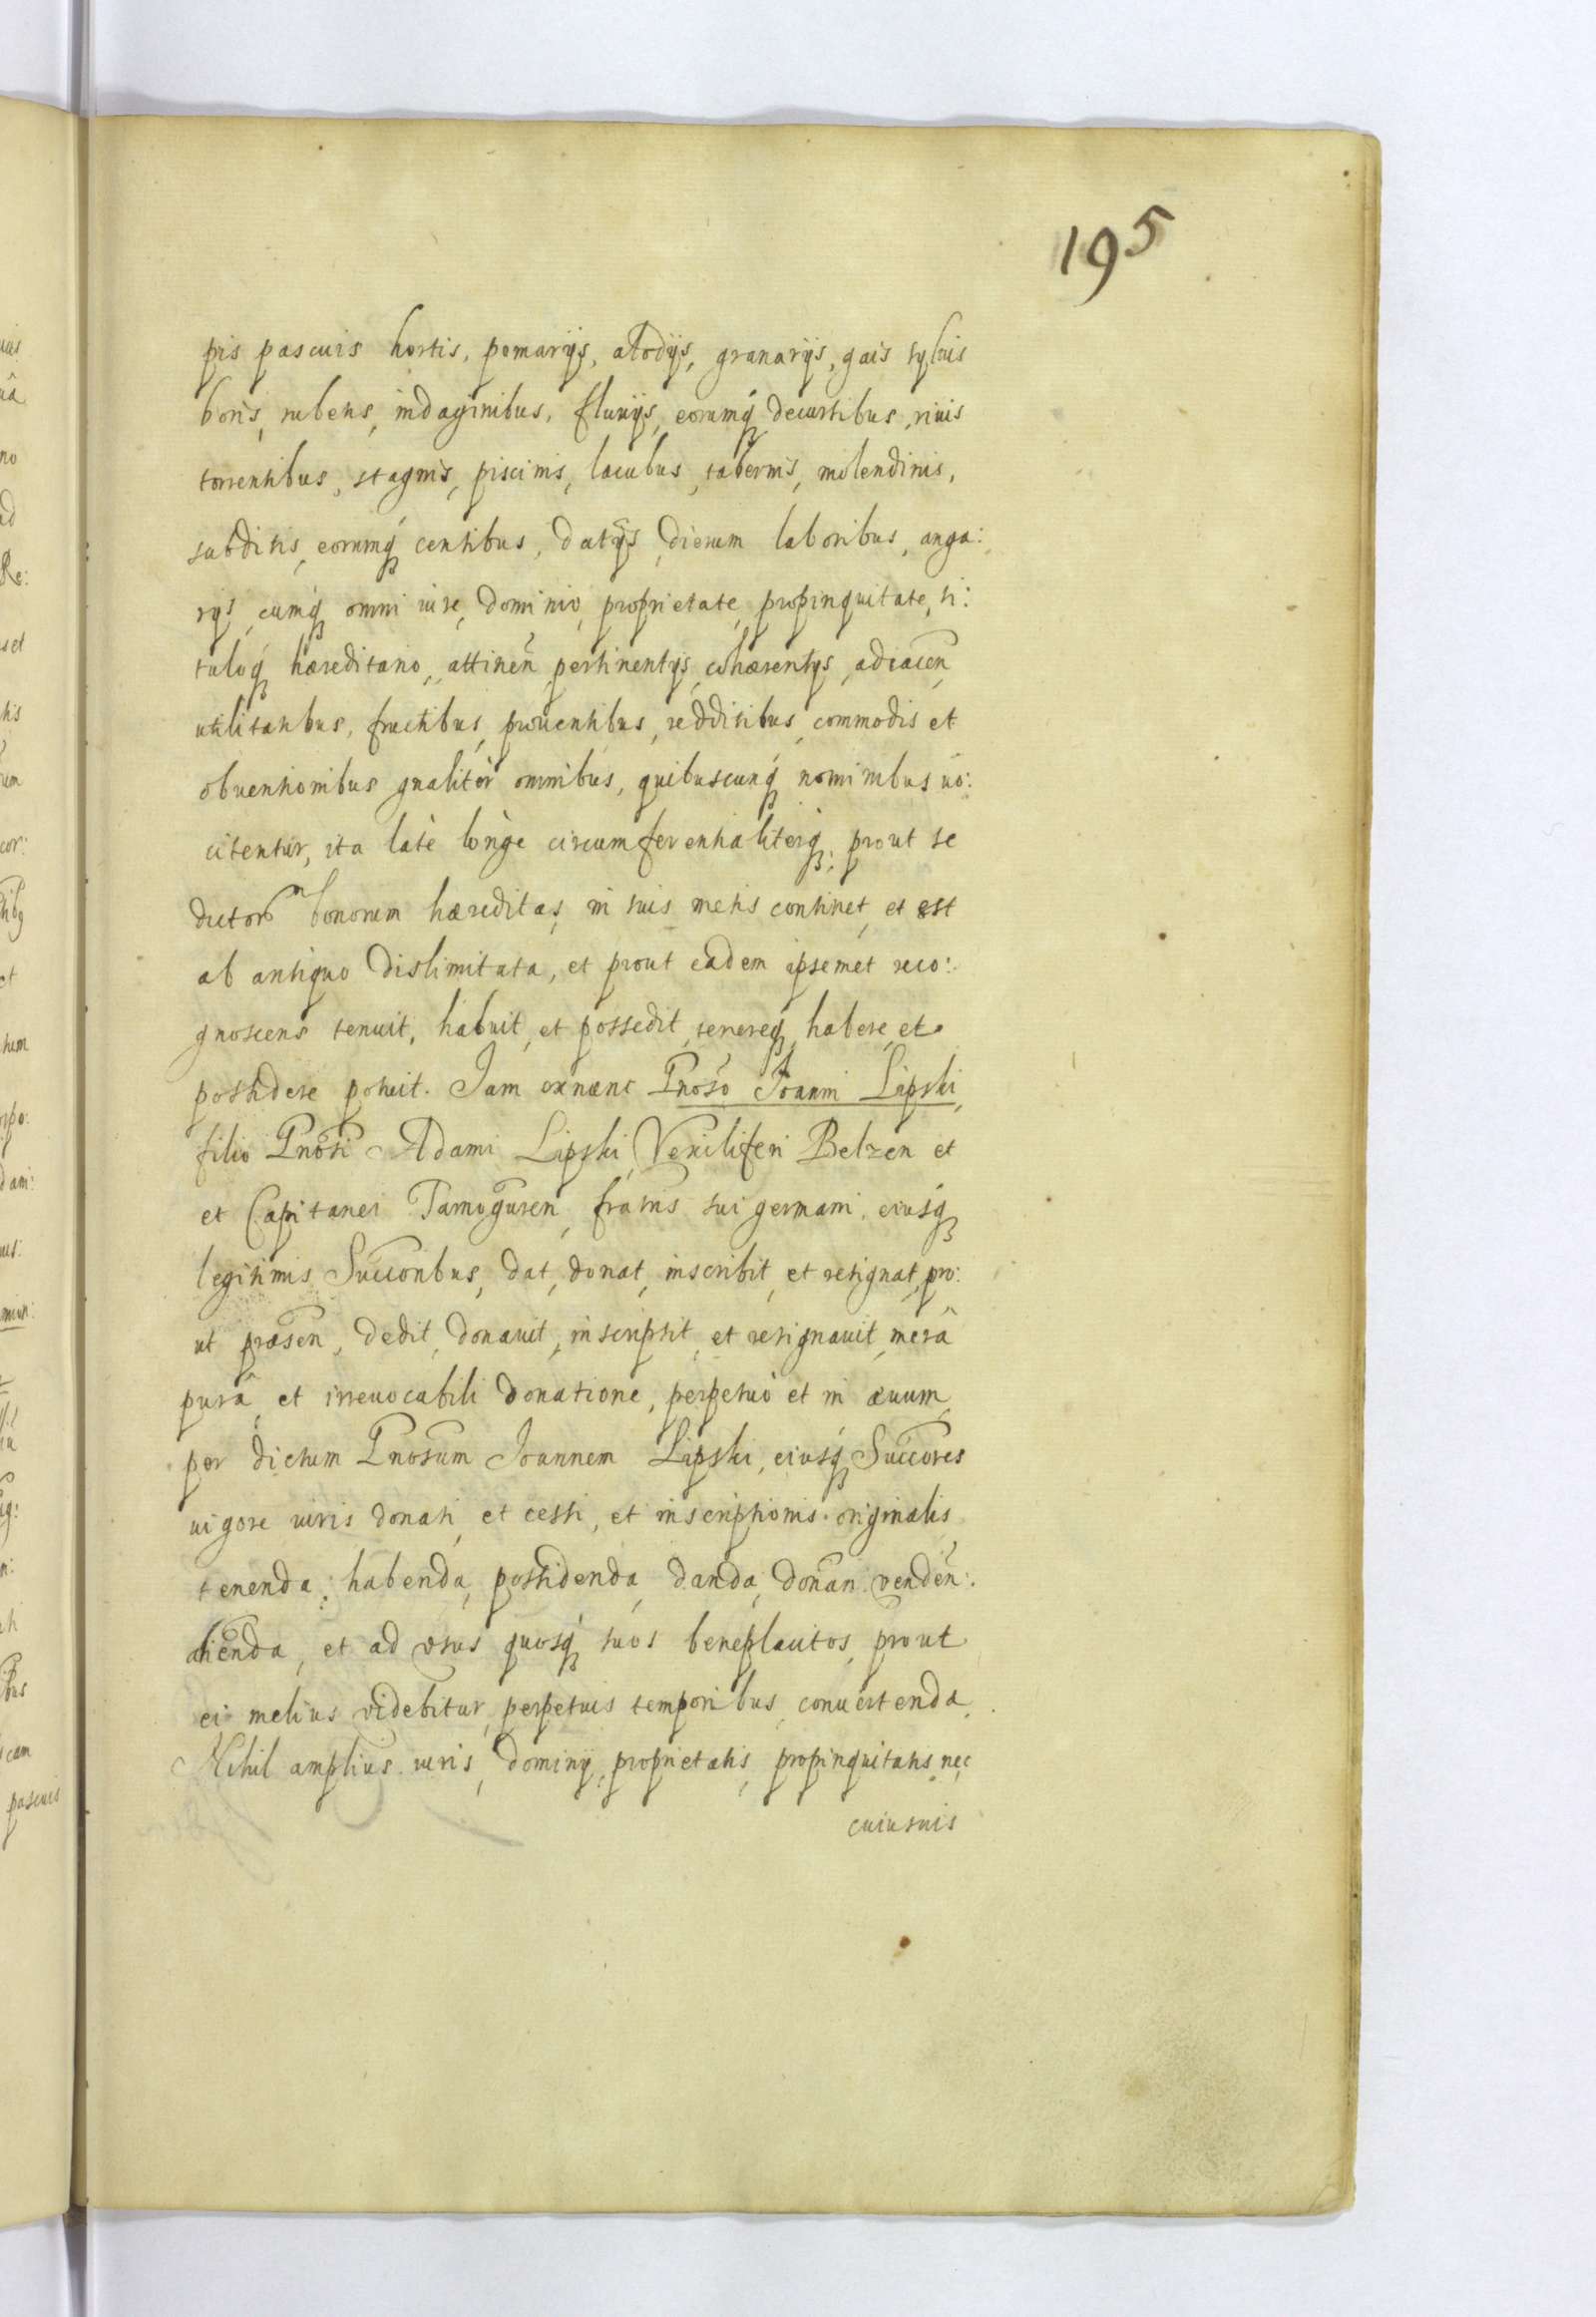 195
pis pascuis hortis, pomarijs, alodijs, granarijs, gais syluis
boris, rubetis, indaginibus, fluuijs, eorumq́ decursibus, riuis
torrentibus, stagnis, piscinis, lacubus, tabernis, molendinis,
subditis, eorumq́ centibus, datijs dierum laboribus, anga:
rijs, cumq́ omni iure, dominio, proprietate, propinquitate, ti:
tuloq́ hæreditario, attineñ pertinentijs, cohærentijs, adiaceñ
utilitatibus, fructibus, prouentibus, redditibus, commodis et
obuentionibus gnaliter omnibus, quibuscunq́ nominibus uo:
citentur, ita latè longè circumferentialiterq́; prout se
dictor bonorum hæreditas, in suis metis continet, et est
ab antiquo dislimitata, et prout eadem ipsemet reco:
gnoscens tenuit, habuit, et possedit, tenereq́, habere, et
possidere potuit. Jam ex nunc Gnoso Joanni Lipski,
filio Gnosi Adami Lipski, Vexiliferi Belzen et
et Capitanei Tarnoguren, fratris sui germani, eiusq́
legitimis Succoribus, dat, donat, inscribit, et resignat, pro:
ut præsen, dedit, donauit, inscripsit, et resignauit, merâ
purâ, et irreuocabili donatione, perpetuò et in æuum,
per dictum Gnosum Joannem Lipski, eiusq́ Succores
uigore iuris donati, et cessi, et inscriptionis originalis
tenenda, habenda, possidenda, danda, donan venden:
alienda, et ad usus quosq́ suos beneplacitos, prout
ei melius videbitur, perpetuis temporibus, conuertenda.
Nihil amplius iuris, dominij, proprietatis, propinquitatis, nec
cuiusuis
pascuis